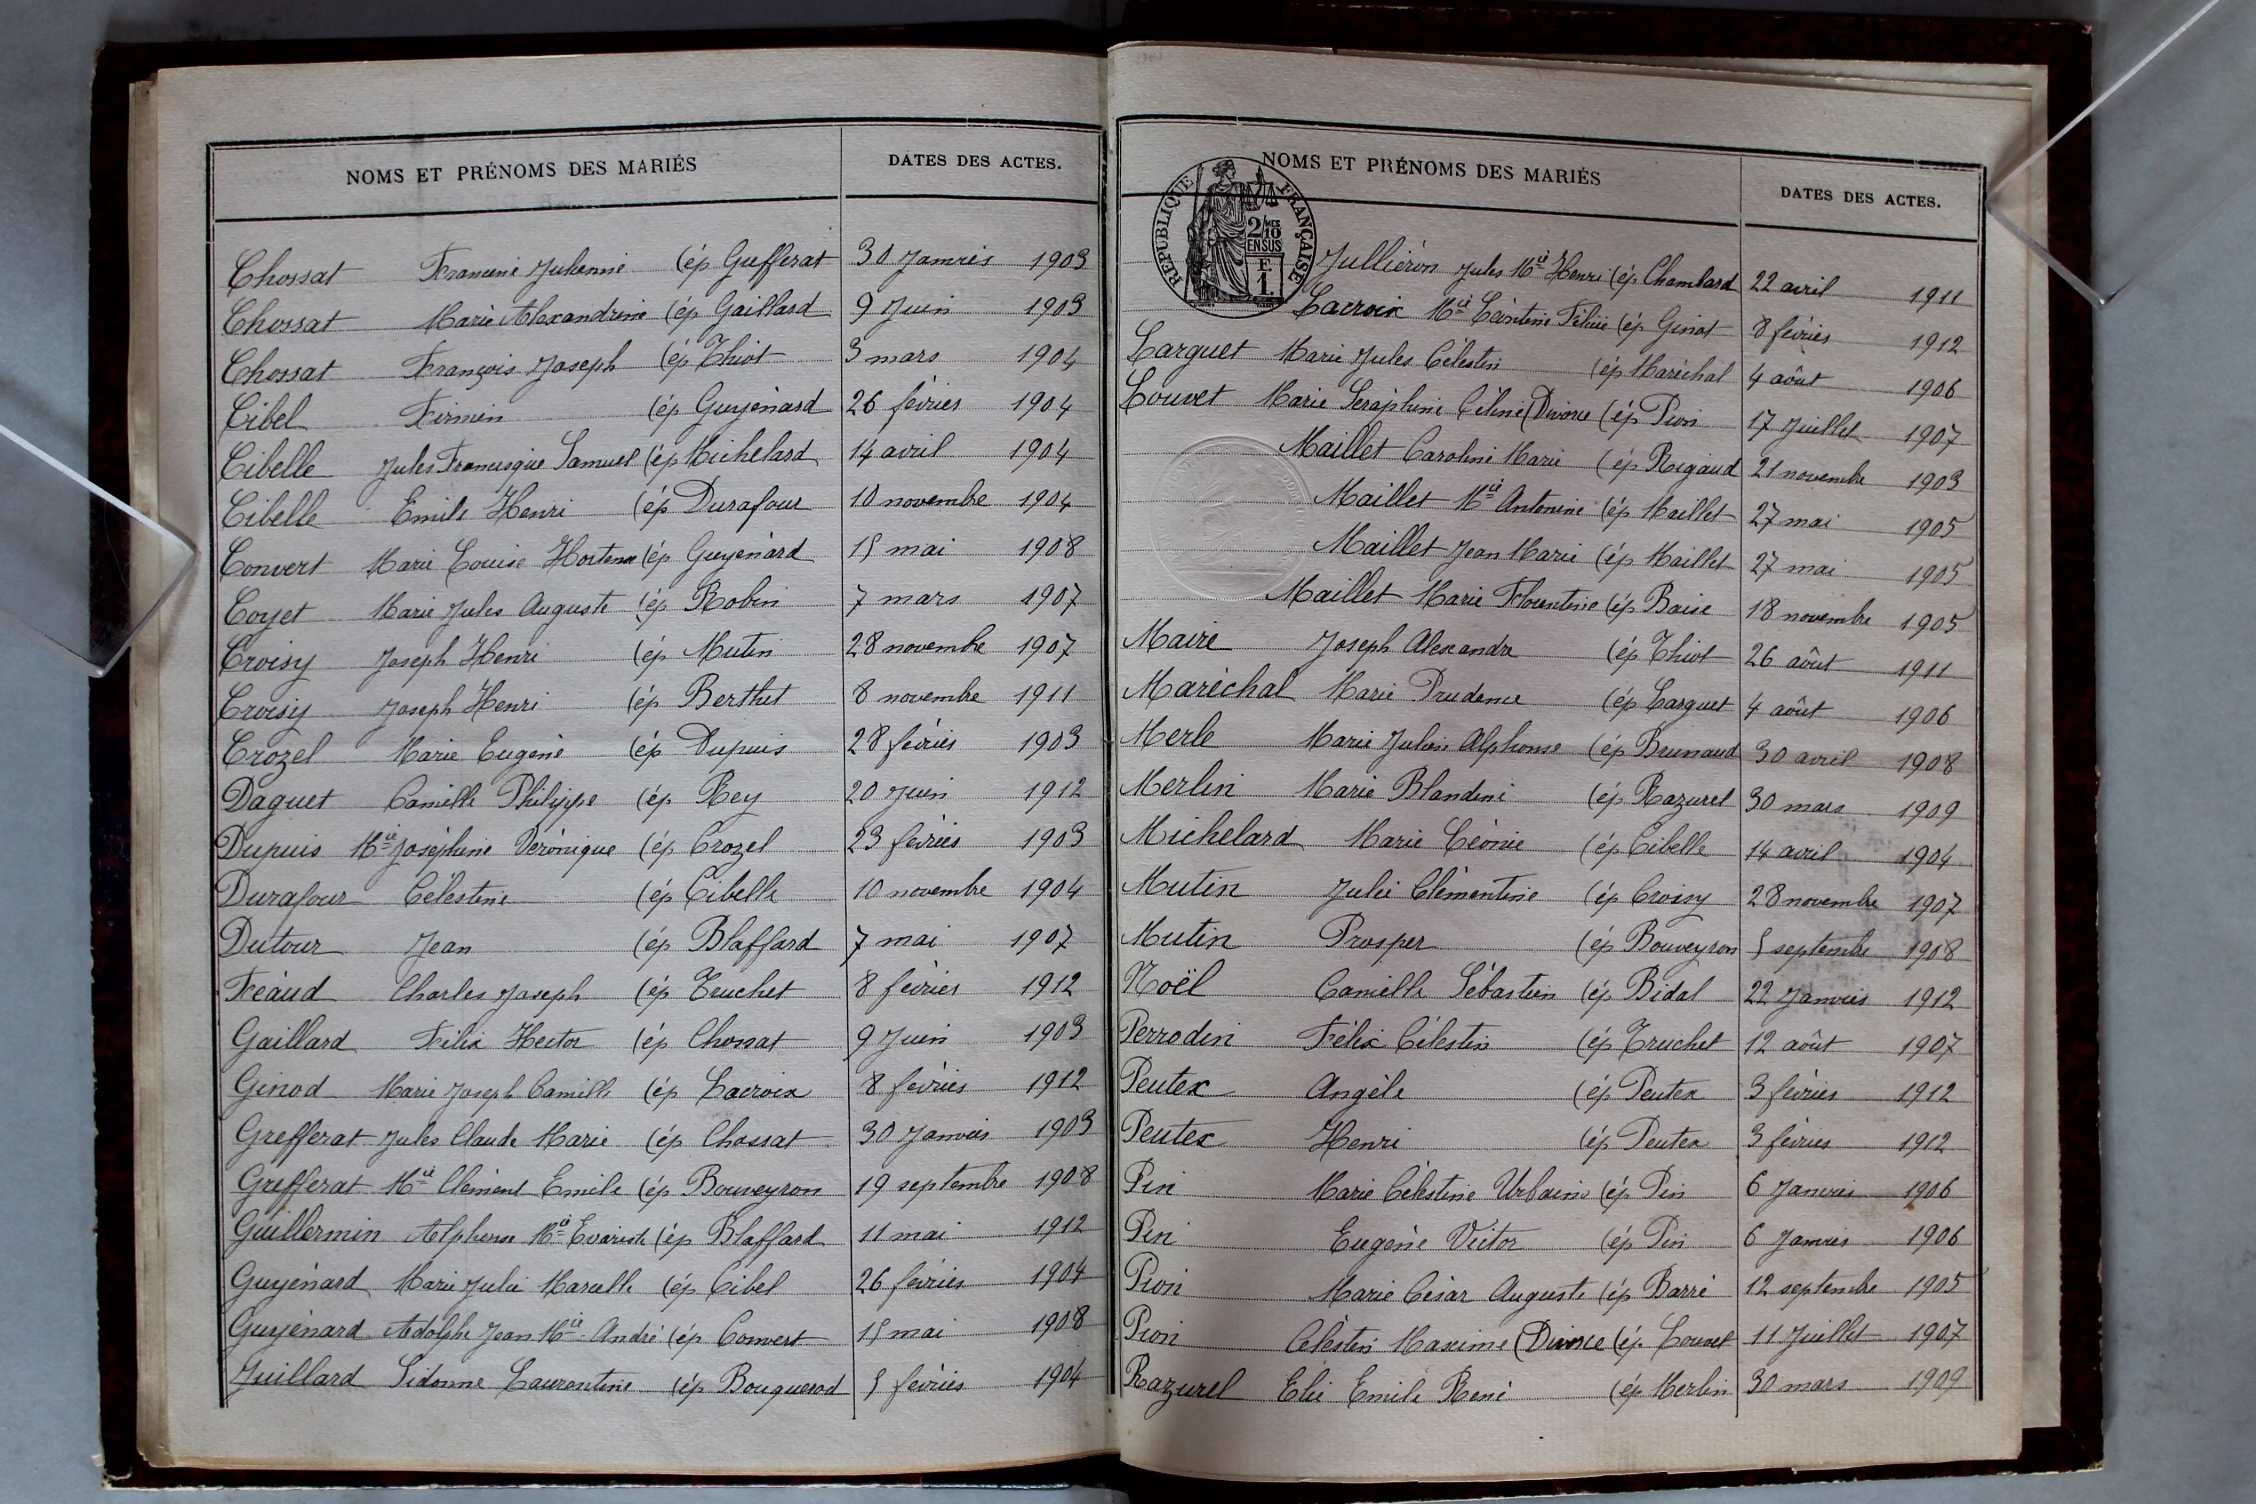 NOMS ET PRÉNOMS DES MARIÉS DATES DES ACTES.
Chossat Francine Julienne (ép Grefferat 30 Janvier 1903
Chossat Marie Alexandrine (ép Gaillard 9 Juin 1903
Chossat François Joseph (ép Thiot 3 mars 1904
Cibel Firmin (ép Guyénard 26 février 1904
Cibelle Jules Francisque Samuel (ép Michelard 14 avril 1904
Cibelle Emile Henri (ép Durafour 10 novembre 1904
Convert Marie Louise Hortense (ép Guyénard 15 mai 1908
Coyet Marie Jules Auguste (ép Robin 7 mars 1907
Croisy Joseph Henri (ép Mutin 28 novembre 1907
Croisy Joseph Henri (ép Berthet 8 novembre 1911
Crozel Marie Eugène (ép Dupuis 28 février 1903
Daguet Camille Philippe (ép Rey 20 Juin 1912
Dupuis Mie Joséphine Véronique (ép Crozel 23 février 1903
Durafour Célestine (ép Cibelle 10 novembre 1904
Dutour Jean (ép Blaffard 7 mai 1907
Féaud Charles Joseph (ép Truchet 8 février 1912
Gaillard Félix Hector (ép Chossat 9 Juin 1903
Ginod Marie Joseph Camille (ép Lacroix 8 février 1912
Grefferat Jules Claude Marie (ép Chossat 30 Janvier 1903
Grefferat Mie Clément Emile (ép Bouveyron 19 septembre 1908
Guillermin Alphonse Mie Evariste (ép Blaffard 11 mai 1912
Guyénard Marie Julie Marcelle (ép Cibel 26 février 1904
Guyénard Adolphe Jean Mie André (ép Convert 15 mai 1908
Juillard Sidonne Laurentine (ép Bouguerod 5 février 1904
NOMS ET PRÉNOMS DES MARIÉS DATES DES ACTES.
REPUBLIQUE FRANÇAISE
2/MES 10
EN SUS
F.
1.
Julliéron Jules Mie Henri (ép Chambard 22 avril 1911
Lacroix Mie Léontine Félicie (ép Ginod 8 février 1912
Larguet Marie Jules Célestin (ép Maréchal 4 août 1906
Louvet Marie Séraphine Céline (Divorce (ép Pion 17 Juillet 1907
Maillet Caroline Marie (ép Rigaud 21 novembre 1903
Maillet Mie Antonine (ép Maillet 27 mai 1905
Maillet Jean Marie (ép Maillet 27 mai 1905
Maillet Marie Florentine (ép Baise 18 novembre 1905
Maire Joseph Alexandre (ép Thiot 26 août 1911
Maréchal Marie Prudence (ép Larguet 4 août 1906
Merle Marie Julien Alphonse (ép Brunaud 30 avril 1908
Merlin Marie Blandine (ép Razurel 30 mars 1909
Michelard Marie Léonie (ép Cibelle 14 avril 1904
Mutin Julie Clémentine (ép Croisy 28 novembre 1907
Mutin Prosper (ép Bouveyron 5 septembre 1908
Noël Camille Sébastien (ép Bidal 22 Janvier 1912
Perrodin Félix Célestin (ép Truchet 12 août 1907
Peutex Angèle (ép Peutex 3 février 1912
Peutex Henri (ép Peutex 3 février 1912
Pin Marie Célestine Urbaine (ép Pin 6 Janvier 1906
Pin Eugène Victor (ép Pin 6 Janvier 1906
Pion Marie César Auguste (ép Barré 12 septembre 1905
Pion Célestin Maxime (Divorce (ép Louvet 11 Juillet 1907
Razurel Elie Emile René (ép Merlin 30 mars 1909